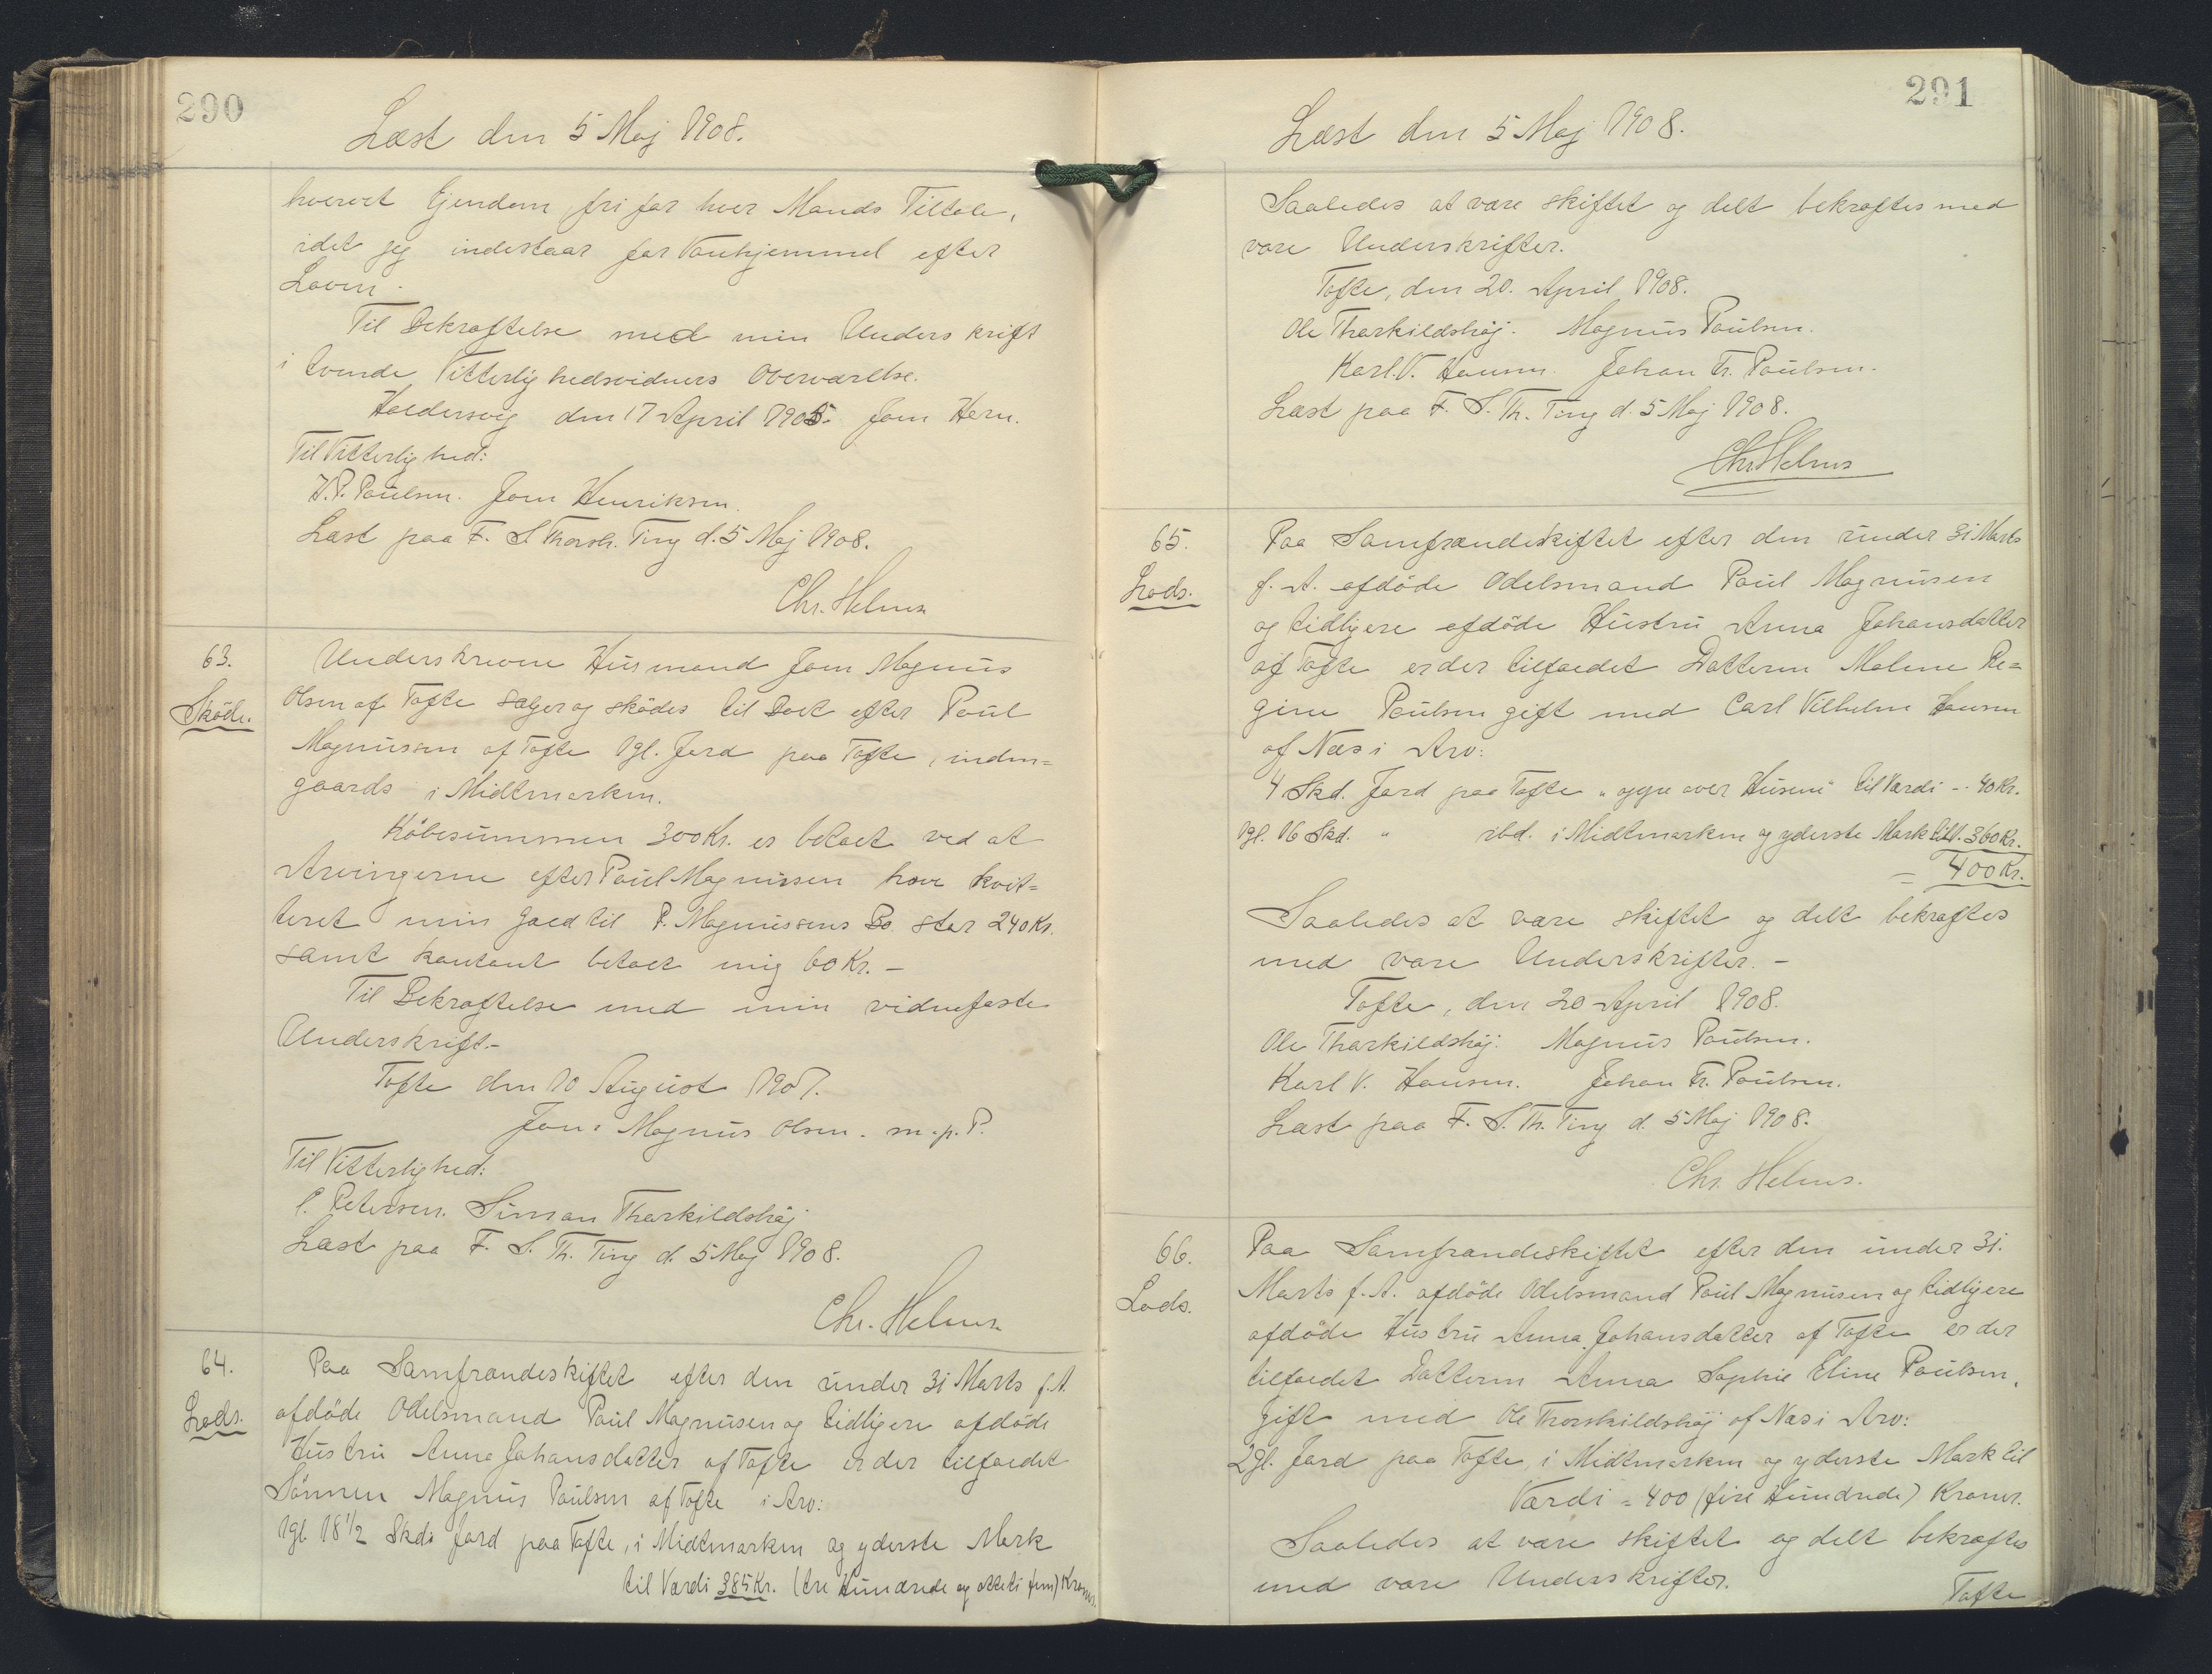 290
Læst den 5 Maj 1908.
hvervet Ejendom fri for hver Mands Tiltale,
idet jeg indestaar for Vanhjemmel efter
Loven.
Til Bekræftelse med min Underskrift
i tvende Vitterlighedsvidners Overværelse.
Haldersvig den 17 April 1905. Joen Hern.
Til Vitterlighed:
J. P. Poulsen. Joen Henriksen.
Læst paa F. S. Thorsh. Ting d. 5 Maj 1908.
Chr. Helms
63.
Skøde.
Underskrevne Husmand Joen Magnus
Olsen af Tofte sælger og skødes til Boet efter Poul
Magnussen af Tofte 1 gl. Jord paa Tofte, inden=
gaards i Midtmarken.
Købesummen 300 Kr. er betalt ved at
Arvingerne efter Poul Magnussen have kvit=
teret min Gæld til P. Magnussens Bo stor 240 Kr.
samt kontant betalt mig 60 Kr. –
Til Bekræftelse med min vidnefaste
Underskrift. –
Tofte den 10 August 1907.
Jon. Magnus Olsen. m. p. P.
Til Vitterlighed:
P. Petersen. Simon Tharkildshøj
Læst paa F. S. Th. Ting d. 5 Maj 1908.
Chr. Helms
64.
Lods.
Paa Samfrændeskiftet efter den under 31 Marts f. A.
afdøde Odelsmand Poul Magnusen og tidligere afdøde
Hustru Anna Johansdatter af Tofte er der tilfaldet
Sønnen Magnus Poulsen af Tofte i Arv:
1 gl. 18 1/2 Skds Jord paa Tofte, i Midtmarken og yderste Mark
til Værdi 385 Kr. (tre Hundrede og otteti fem) Kroner.
291
Læst den 5 Maj 1908.
Saaledes at være skiftet og delt bekræftes med
vore Underskrifter.
Tofte, den 20. April 1908.
Ole Tharkildshøj. Magnus Poulsen.
Karl. V. Hansen. Johan Fr. Poulsen.
Læst paa F. S. Th. Ting d. 5 Maj 1908.
Chr. Helms
65.
Lods.
Paa Samfrændeskiftet efter den under 31 Marts
f. A. afdøde Odelsmand Poul Magnusen
og tidligere afdøde Hustru Anna Johansdatter
af Tofte er der tilfaldet Datteren Malene Re=
gine Poulsen gift med Carl Vilhelm Hansen
af Næs i Arv:
4 Skd. Jord paa Tofte "oppe over Husene" til Værdi -. 40 Kr.
1 gl. 16 Skd. " ibd. i Midtmarken og yderste Mark til V. 360 Kr.
= 400 Kr.
Saaledes at være skiftet og delt bekræftes
med vore Underskrifter. –
Tofte, den 20 April 1908.
Ole Tharkildshøj. Magnus Poulsen.
Karl V. Hansen. Johan Fr. Poulsen.
Læst paa F. S. Th. Ting d. 5 Maj 1908.
Chr. Helms.
66.
Lods.
Paa Samfrændeskiftet efter den under 31.
Marts f. A. afdøde Odelsmand Poul Magnusen og tidligere
afdøde Hustru Anna Johansdatter af Tofte er der
tilfaldet Datteren Anna Sophie Eline Poulsen,
gift med Ole Thorskildshøj af Næs i Arv:
2 gl. Jord paa Tofte, i Midtmarken og yderste Mark til
Værdi = 400 (fire Hundrede) Kroner.
Saaledes at være skiftet og delt bekræftes
med vore Underskrifter.
Tofte